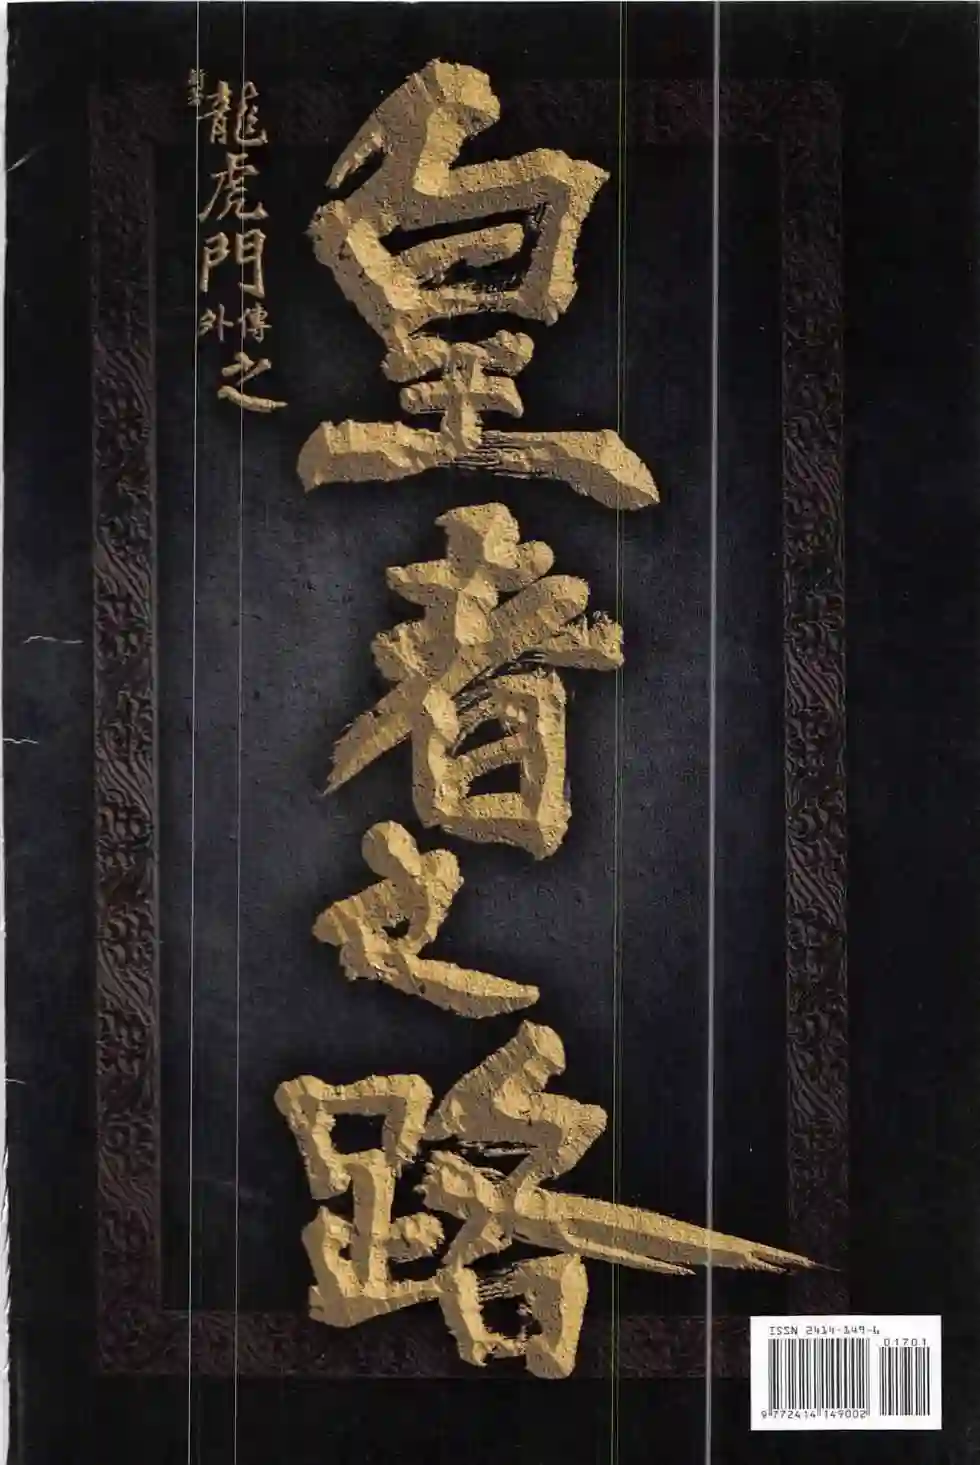 新著龍虎門外傳之
皇者之路
ISSN 2414-149-6
01701
9 772414 149002